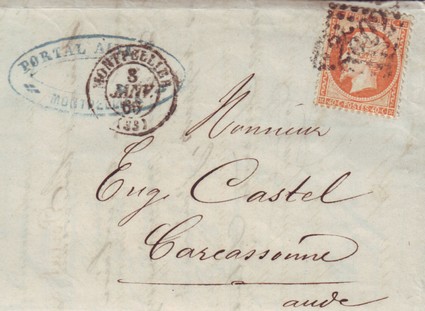 PORTAL
MONTPELLIER
MONTPELLIER
8
JANV.
(33)
Monsieur
Eug. Castel
Carcassonne
aude